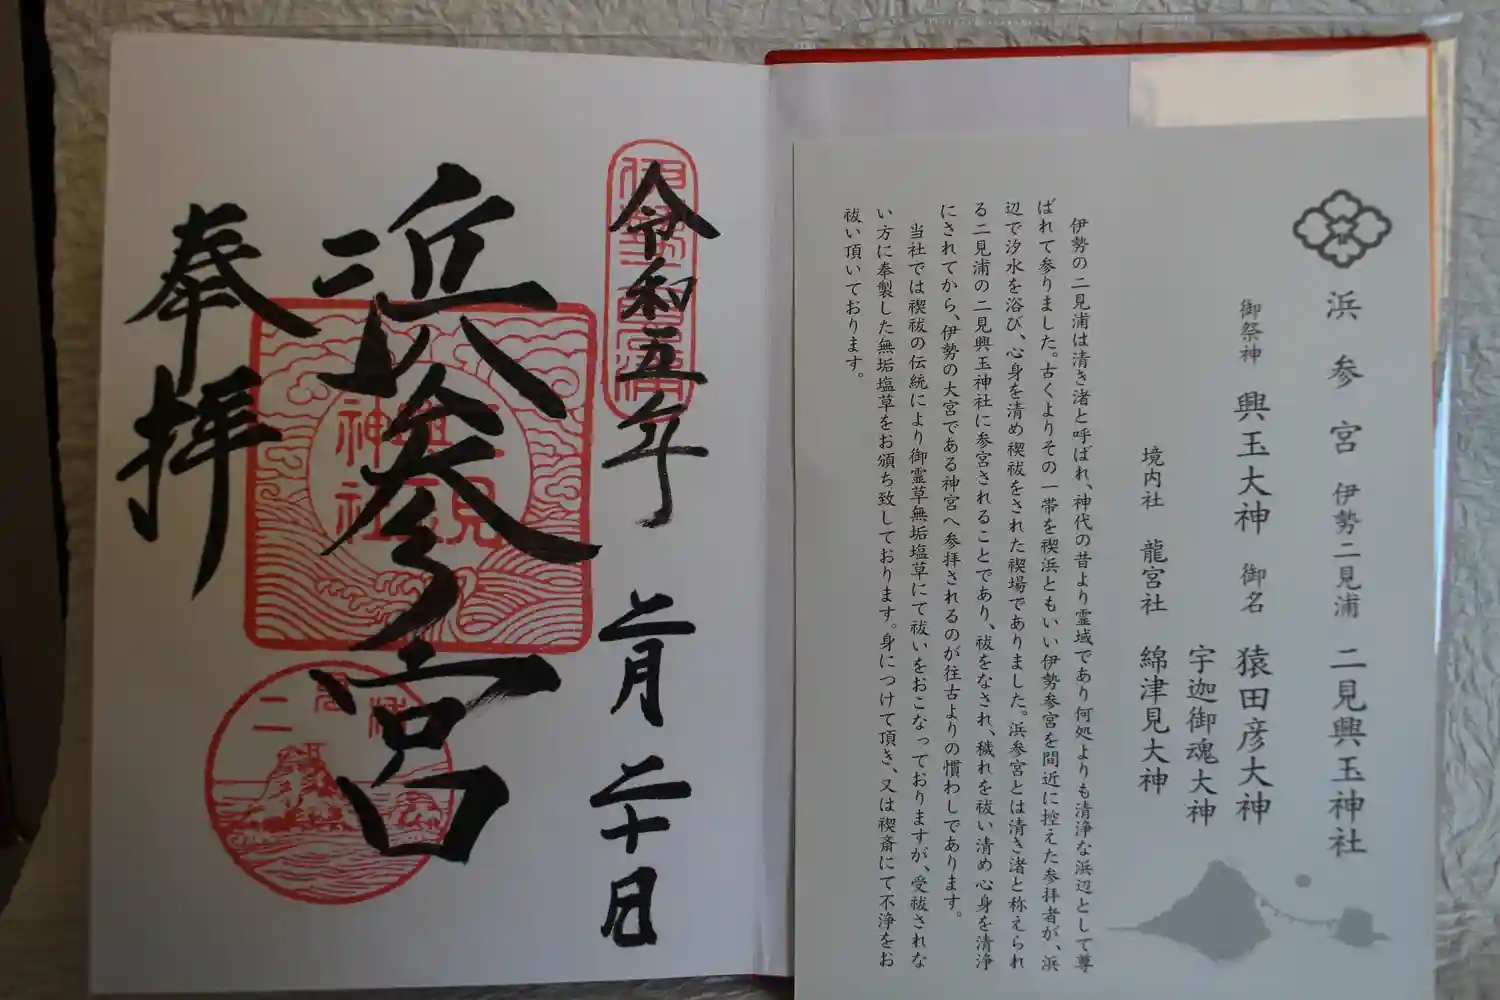 浜参宮 伊勢二見浦 二見興玉神社
御祭神 興玉大神 御名 猿田彦大神
宇迦御魂大神
境内社 龍宮社 綿津見大神
伊勢の二見浦は清き渚と呼ばれ、神代の昔より霊域であり何処よりも清浄な浜辺として尊
ばれて参りました。古くよりその一帯を禊浜ともいい伊勢参宮を間近に控えた参拝者が、浜
辺で汐水を浴び、心身を清め禊祓をされた禊場でありました。浜参宮とは清き渚と称えられ
る二見浦の二見興玉神社に参宮されることであり、祓をなされ、穢れを祓い清め心身を清浄
にされてから、伊勢の大宮である神宮へ参拝されるのが往古よりの慣わしであります。
当社では禊祓の伝統により御霊草無垢塩草にて祓いをおこなっておりますが、受祓されな
い方に奉製した無垢塩草をお頒ち致しております。身につけて頂き、又は禊斎にて不浄をお
祓い頂いております。
令和五年 二月 二十日
浜参宮
奉拝
二見
興玉
神社
二見浦